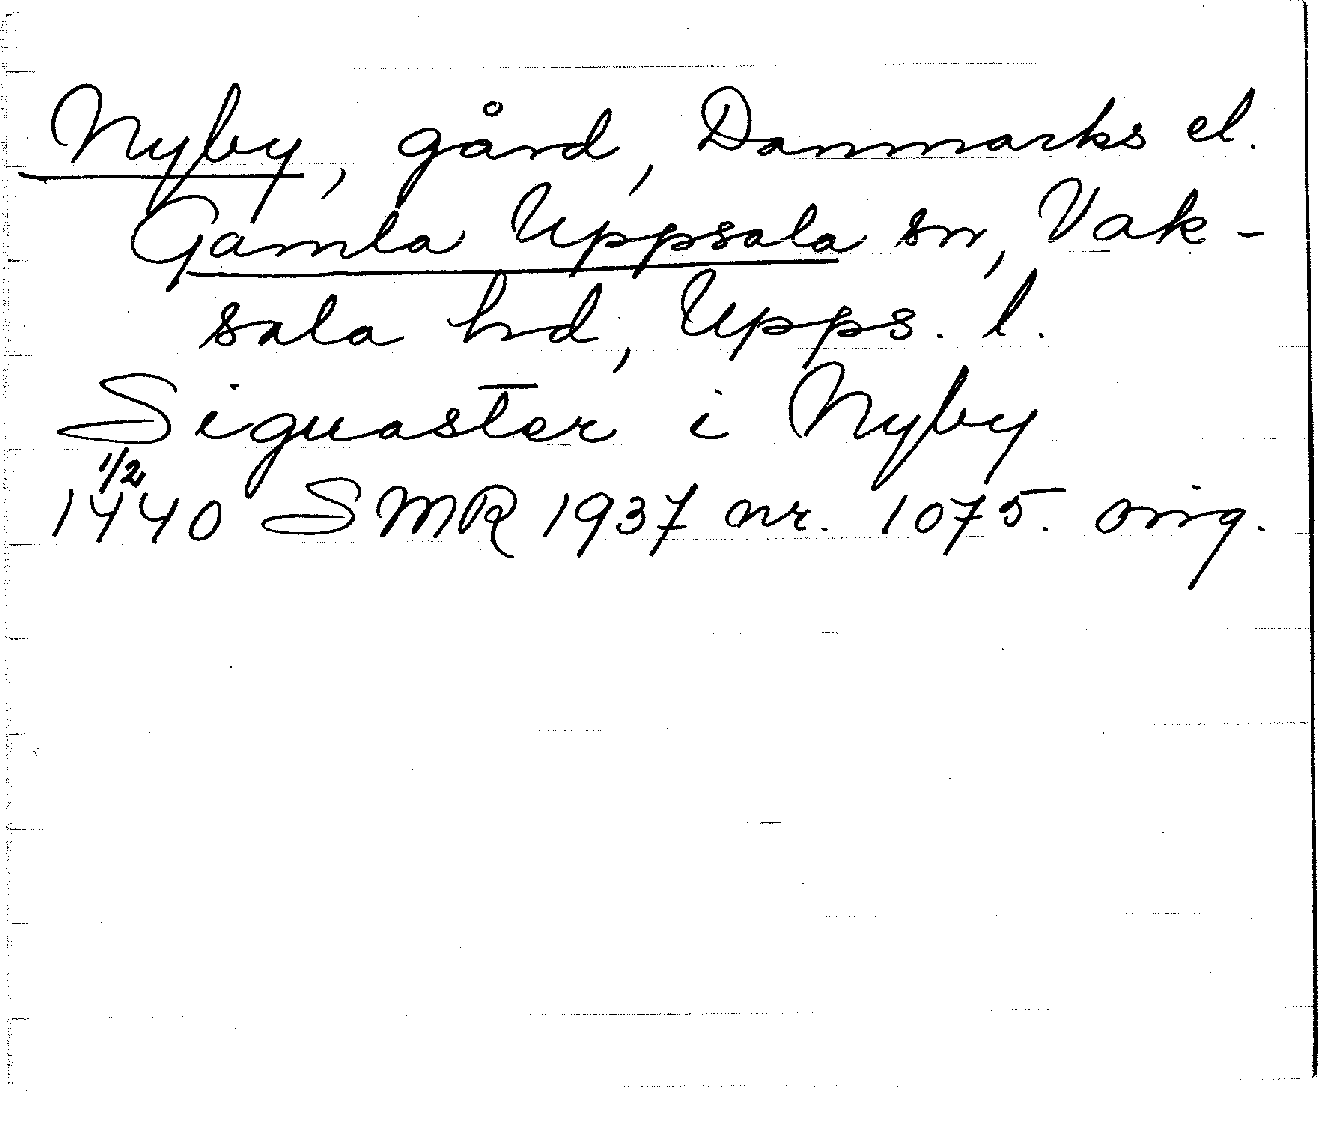 Nyby, gård, Danmarks el.
Gamla Uppsala sn, Vak-
sala hd, Upps. l.
Siguaster i Nyby
1/2
1440 SMR 1937 nr. 1075. orig.